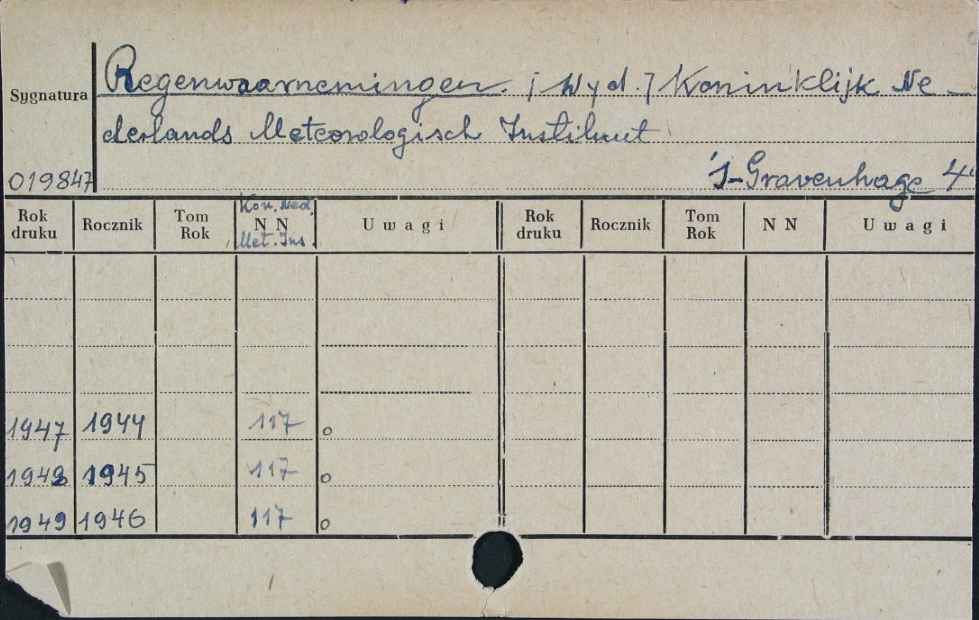 Sygnatura
Regenwaarnemingen. [Wyd.] Koninklijk Ne-
derlands Meteorologisch Instituut
019847
's-Gravenhage 4°
Rok druku Rocznik Tom Rok Kon. Ned. NN Met. Ins. Uwagi Rok druku Rocznik Tom Rok NN Uwagi
1947 1944 117 o
1948 1945 117 o
1949 1946 117 o